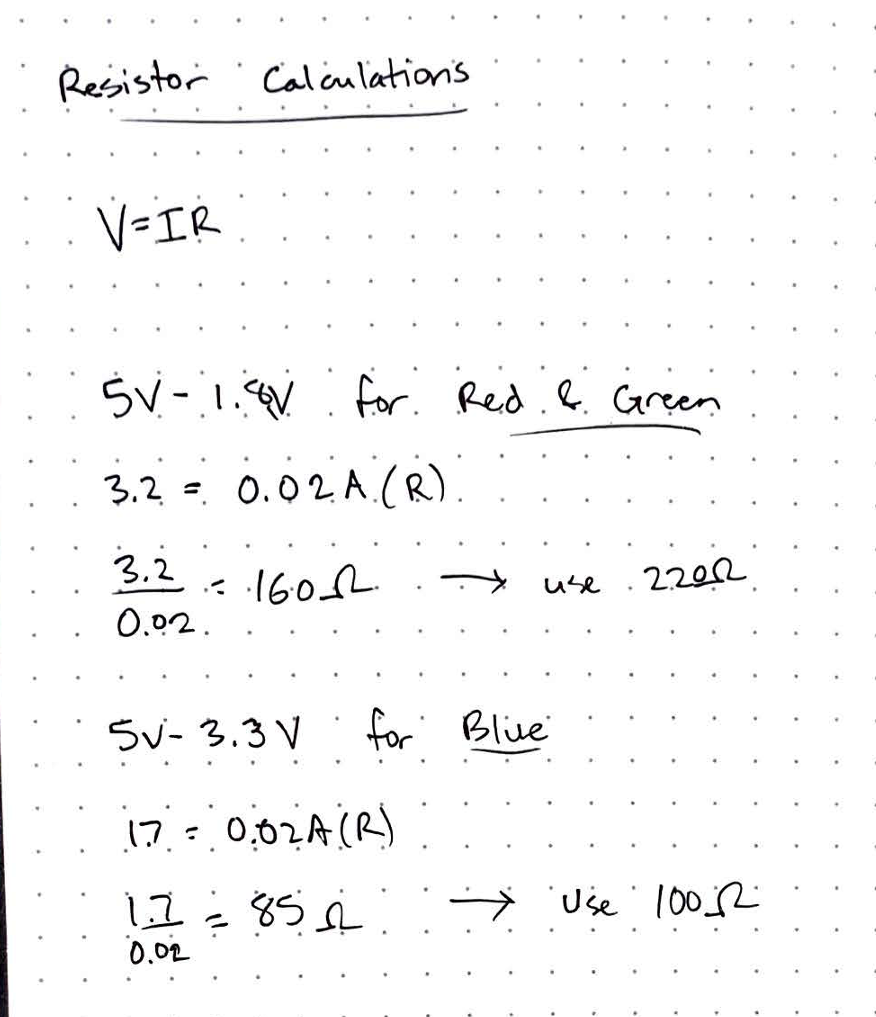 Resistor Calculations
V=IR
5V-1.8V for Red & Green
3.2 = 0.02A(R)
3.2
0.02
= 160Ω → use 220Ω
5V-3.3V for Blue
1.7 = 0.02A(R)
1.7
0.02
= 85Ω → Use 100Ω